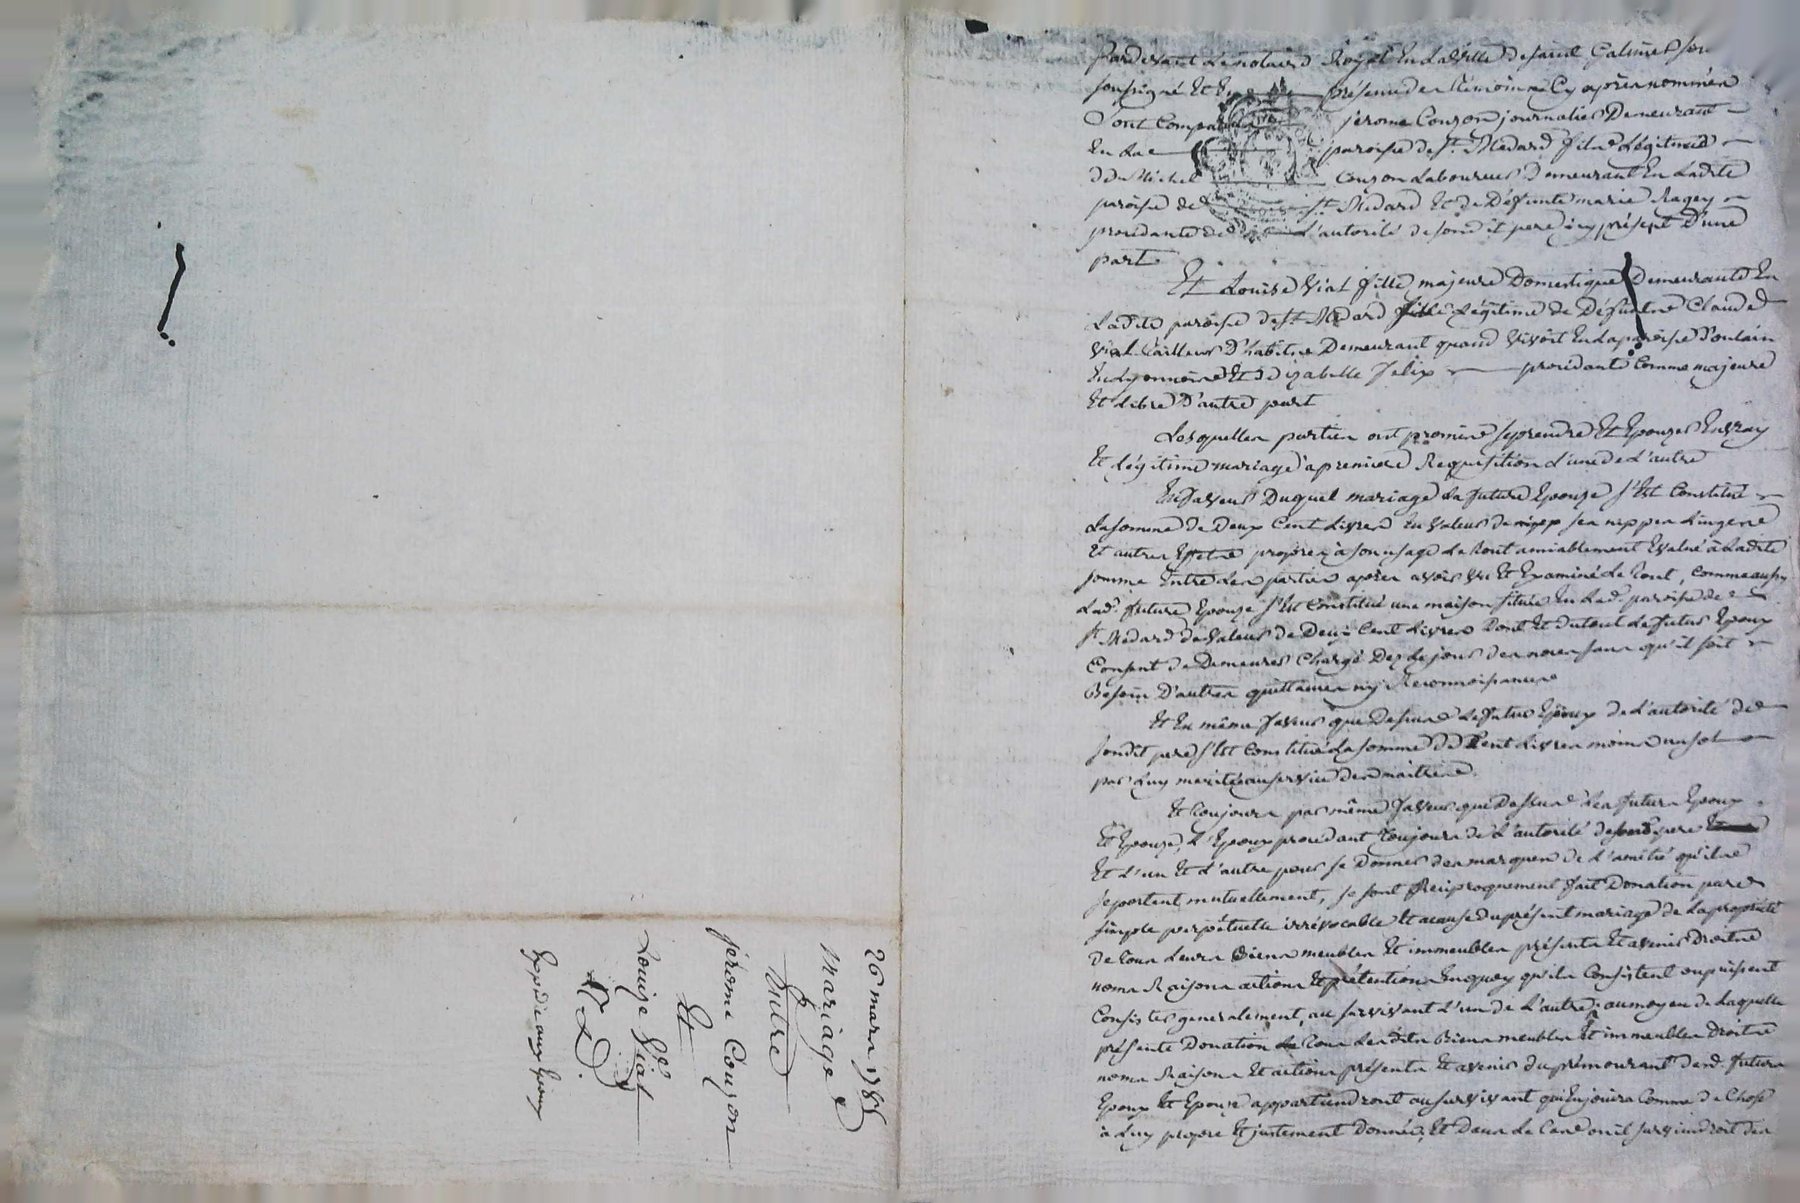 26 mars 1785
Mariage
Entre
jérome Couzon
Et
Louise Vial
Exp.ée aux Epoux
Pardevant le notaire Royal En la Ville de saint Galmier sou
soussigné Et En présence des témoins Cy après nommés
Sont Comparus jérome Couzon journalier Demeurant
En La paroisse de st. Médard fils Légitime
de Michel Couzon Laboureur demeurant En Ladite
paroisse de st. Médard Et de Défunte marie Ragey
procédante de L'autorité de son dit pere icy présent D'une
part
Et Louise Vial fille majeure Domestique Demeurante En
Ladite paroise de st. Médard fille Légitime de Défunt Claude
Vial tailleur D'habits Demeurant quand vivoit En La paroisse
En Lyonnois Et d'izabelle felix procédante Comme majeure
Et Libre D'autre part
Lesquelles parties ont promis se prendre Et Epouzer En vray
Et Légitime mariage a premiere Requisition L'une de L'autre
En faveur Duquel mariage La future Epouze s'Est Constitué
La somme de Deux Cent Livres En valeur de ses nippes Lingerie
Et autres Effets propres à son usage Le tout amiablement Evalué à Ladite
somme Entre Les parties après avoir vu Et Examiné Le tout, comme aussy
Lad. future Epouze s'Est Constitué une maison située En Lad. paroise de
st. Médard de valeur de Deux Cent Livres Dont Et du tout Le futur Epoux
Consent de Demeurer Chargé Dez Le jour des noces sans qu'il soit
Besoin D'autres quittances ny Reconnoisances
Et En même faveur que Dessus Le futur Epoux de L'autorité de
sondit pere s'Est Constitué La somme de Cent Livres moins un sol
par Luy mérité au service des maitres
Et toujours par même faveur que Dessus Les futurs Epoux
Et Epouze, L'Epoux procédant toujours de L'autorité de son pere
Et L'un Et L'autre pour se Donner des marques de L'amitié qu'ils
se portent mutuellement, se sont Réciproquement fait Donation pure
simple perpétuelle irrévocable Et a cause du présent mariage de La propriété
De tous Leurs Biens meubles Et immeubles présents Et avenir Droits
noms Raisons actions Et prétentions En quoy qu'ils Consistent ou puissent
Consister generalement, au survivant L'un de L'autre, au moyen de Laquelle
présente Donation tous Lesdits Biens meubles Et immeubles Droits
noms Raisons Et actions présents Et avenir du prémourant desd. futurs
Epoux Et Epouze appartiendront au survivant qui En jouira Comme de Chose
à Luy propre Et justement Donnée, Et Dans Le Cas ou il surviendroit des